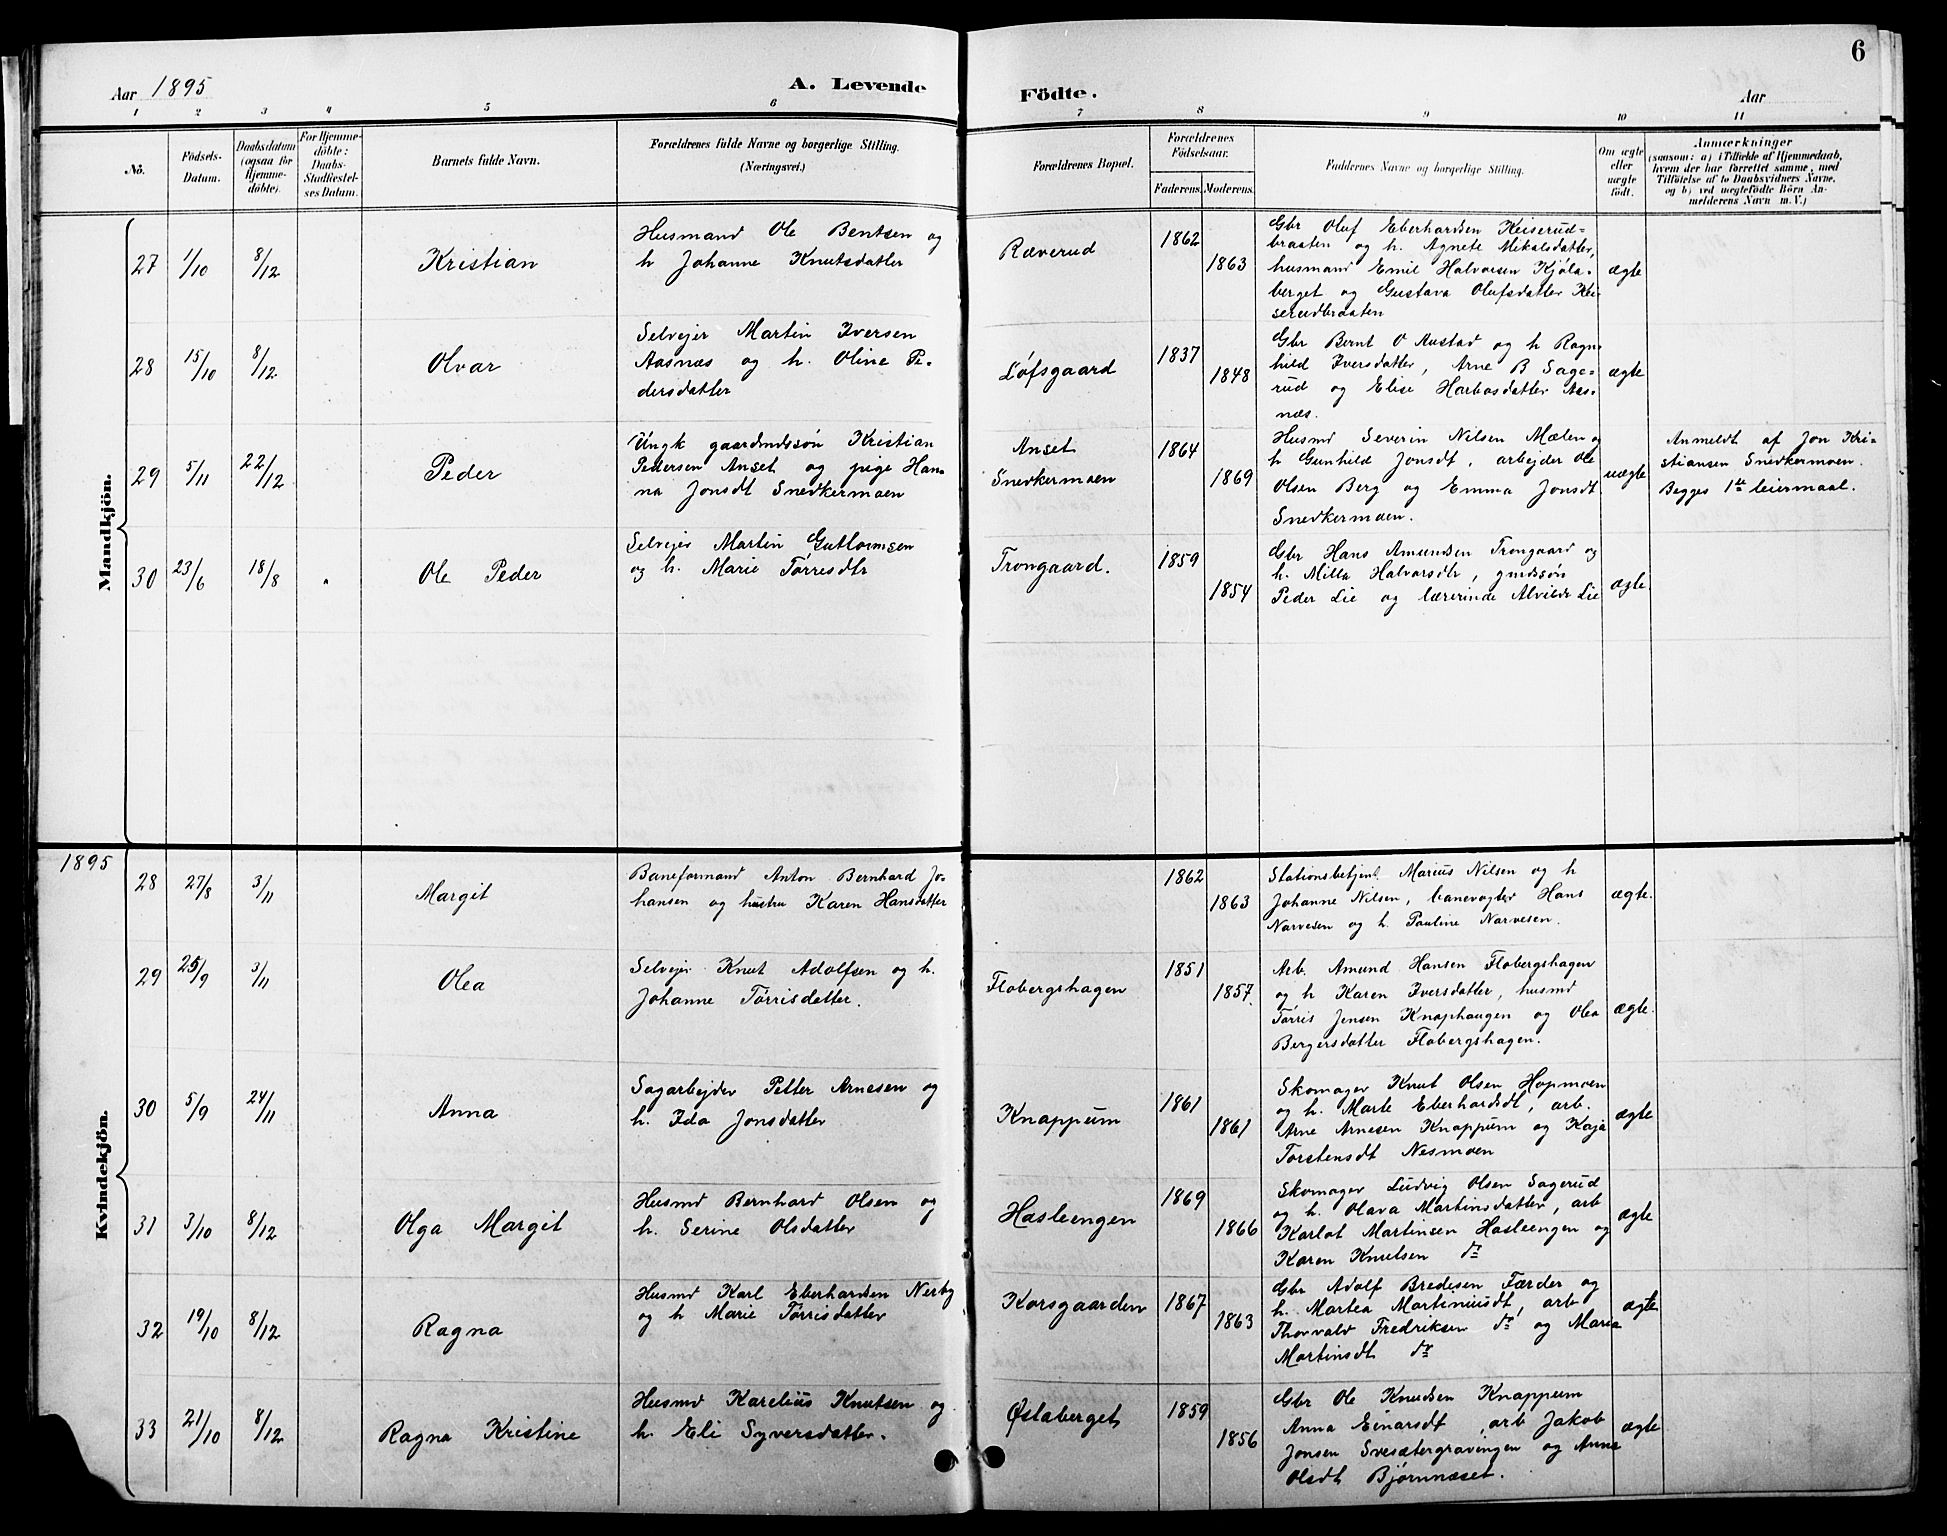 6
Aar 1895
A. Levende
Födte.
Aar
1 2 3 4 5 6 7 8 9 10 11
No.
Födsels-
Datum.
Daabsdatum
(ogsaa for
Hjemme-
döbte).
For Hjemme-
döbte:
Daabs-
Stadfæstel-
ses Datum.
Barnets fulde Navn.
Forældrenes fulde Navne og borgerlige Stilling.
(Næringsvei.)
Forældrenes Bopæl.
Forældrenes
Födselsaar.
Faderens. Moderens.
Faddernes Navne og borgerlige Stilling.
Om ægte
eller
uægte
født.
Anmærkninger
(saasom: a) i Tilfælde af Hjemmedaab,
hvem der har forrettet samme, med
Tilföielse af to Daabsvidners Navne,
og b) ved uægtefödte Börn An-
melderens Navn m. V.)
Mandkjön.
27 1/10 8/12 Kristian
Husmand Ole Bentsen og
h Johanne Knutsdatter
Ræverud
1862
1863
Gbr Oluf Eberhardsen Keiserud-
braaten og h. Agnete Mikalsdatter,
husmand Emil Halvorsen Kjøla-
berget og Gustava Olufsdatter Kei-
serudbraaten
ægte
28 15/10 8/12 Olvar
Selvejer Martin Iversen
Aasnæs og h. Oline Pe-
dersdatter
Løfsgaard
1837
1848
Gbr Bernt O Austad og h Ragn-
hild Iversdatter, Arne B Sage-
rud og Elise Harbosdatter Aas-
næs.
ægte
29 5/11 22/12 Peder
Ungk gaardmdssøn Kristian
Pedersen Anset og pige Han-
na Jonsdt Snedkermoen
Anset
Snedkermoen
1864
1869
Husmd Severin Nilsen Mælen og
h Gunhild Jonsdt, arbejder Ole
Olsen Berg og Emma Jonsdt
Snedkermoen.
uægte
Anmeldt af Jon Kri-
stiansen Snedkermoen.
Begges 1ste leiermaal.
30 23/6 18/8 " Ole Peder
Selvejer Martin Guttormsen
og h. Marie Tørresdtr
Trongaard.
1859
1854
Gbr Hans Amundsen Trongaard og
h. Milla Halvorsdtr, gmdssøn
Peder Lie og lærerinde Alvilde Lie
ægte.
1895
Kvindekjön.
28 27/8 3/11 Margit
Baneformand Anton Bernhard Jo-
hansen og hustru Karen Hansdatter
1862
1863
Stationsbetjent Marius Nilsen og h
Johanne Nilsen, banevogter Hans
Narvesen og h. Pauline Narvesen.
ægte.
29 25/9 3/11 Olea
Selvejer Knut Adolfsen og h.
Johanne Tørrisdatter.
Flobergshagen
1851
1857.
Arb. Amund Hansen Flobergshagen
og h Karen Iversdatter, husmd
Tørris Jensen Knaphaugen og Olea
Bergersdatter Flobergshagen.
ægte.
30 5/9 24/11 Anna
Sagarbejder Petter Arnesen og
h. Ida Jonsdatter
Knappum
1861
1861
Skomager Knut Olsen Hopmoen
og h. Marte Eberhardsdt, arb.
Arne Arnesen Knappum og Kaja
Torstensdt Nesmoen
ægte
31 3/10 8/12 Olga Margit
Husmd Bernhard Olsen og
h. Serine Olsdatter
Hasleengen
1869
1866
Skomager Ludvig Olsen Sagerud
og h. Olava Martinsdatter, arb
Karlot Martinsen Hasleengen og
Karen Knutsen do
ægte
32 19/10 8/12 Ragna
Husmd Karl Eberhardsen Nerby
og h Marie Tørrisdatter
Korsgaarden
1867
1863
Gbr Adolf Bredesen Færder og
h. Martea Martiniusdt, arb
Thorvald Fredriksen do og Maria
Martinsdt do
ægte
33 21/10 8/12 Ragna Kristine
Husmd Karelius Knutsen og
h. Eli Syversdatter.
Østaberget
1859
1856
Gbr Ole Knudsen Knappum
Anna Einarsdt, arb Jakob
Jonsen Svesætergravingen og Anne
Olsdt Bjørnnæset.
ægte